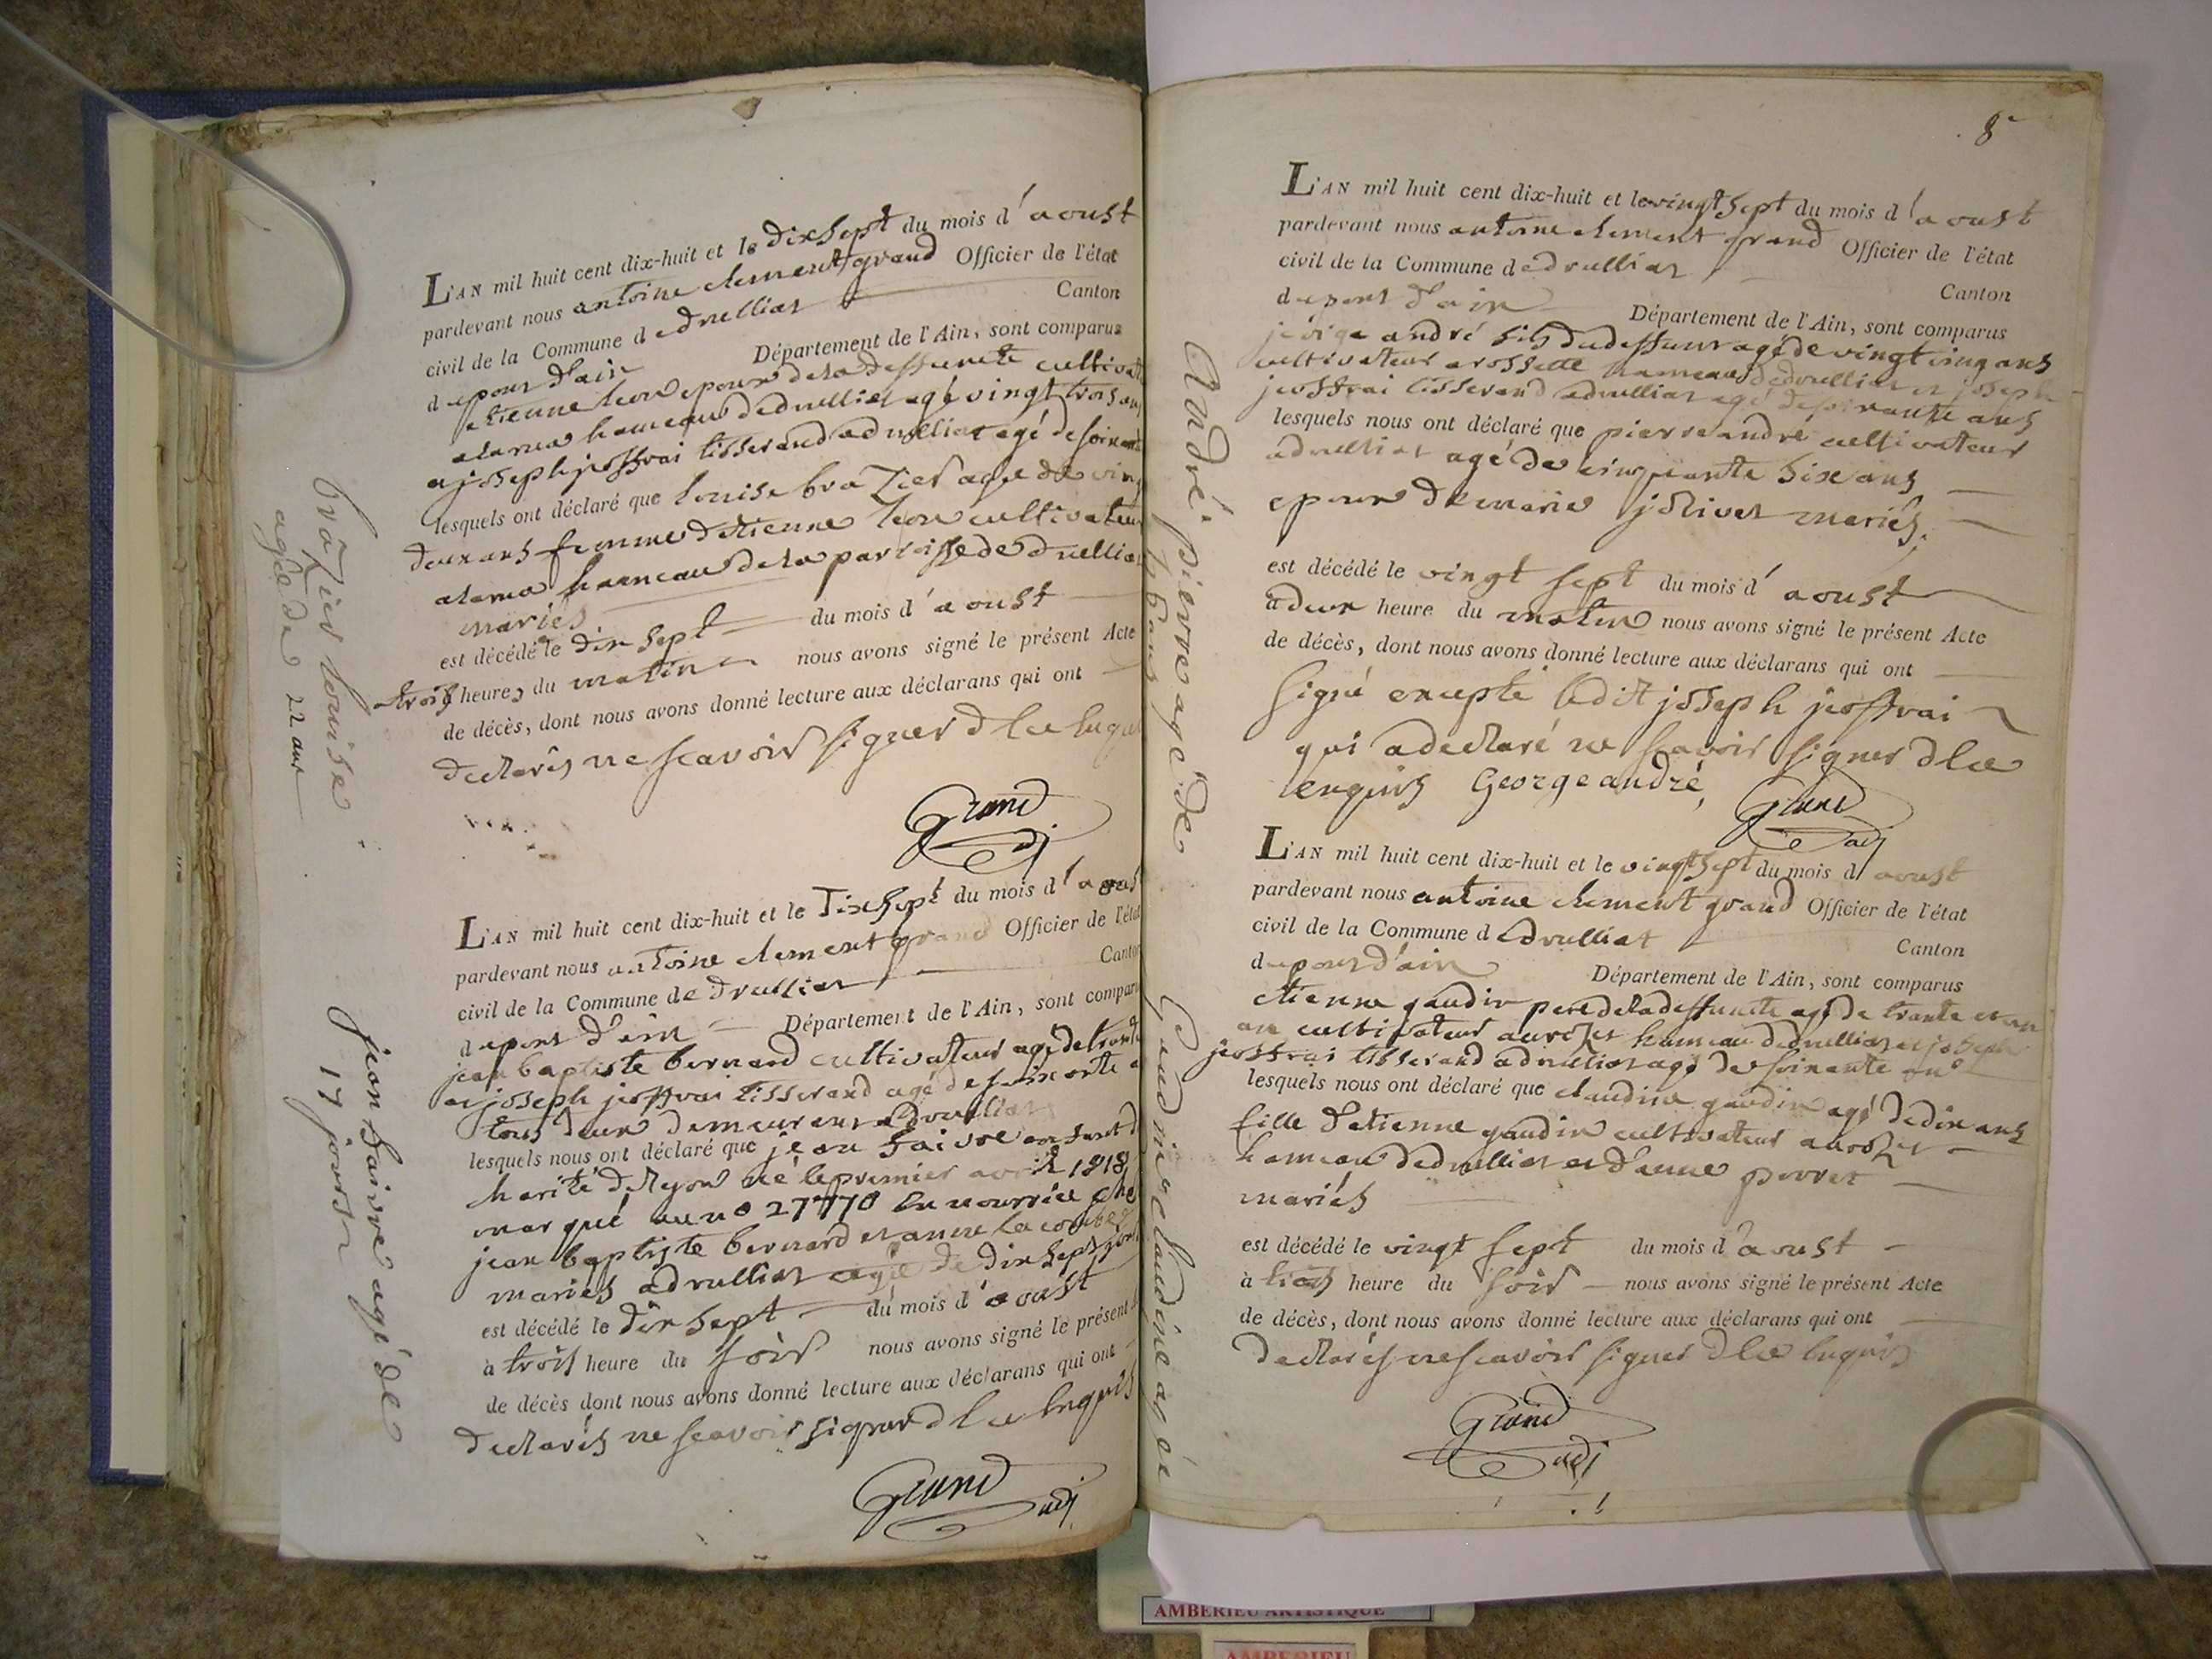 L'AN mil huit cent dix-huit et le dix sept du mois d'aoust
pardevant nous antoine clement grand Officier de l'état
civil de la Commune de druilliat Canton
du pont d'ain Département de l'Ain, sont comparus
etienne epoux de la deffuncte cultivat
hameau de druilliat agé vingt trois ans
a joseph joffrai tisserand a druilliat agé de soixante
lesquels ont déclaré que louise brazier agée de vingt
deux ans femme d'etienne cultivateur
hameau de la parroisse de druilliat
mariés
est décédé le dix sept du mois d'aoust
trois heures du matin nous avons signé le présent Acte
de décès, dont nous avons donné lecture aux déclarans qui ont
declarés ne scavoir signer d ce enquis
Grand adj
brazier louise
agée de 22 ans
L'AN mil huit cent dix-huit et le dix sept du mois d'aoust
pardevant nous antoine clement grand Officier de l'état
civil de la Commune de druilliat Canton
du pont d'ain Département de l'Ain, sont comparus
jean baptiste bernard cultivateur agé de trente
et joseph joffrai tisserand agé de soixante
tous deux demeurant a druilliat
lesquels nous ont déclaré que jean faivre enfant d
harité de lyon né le premier avril 1818
marqué au no 27770 en nourrice chez
jean baptiste bernard et anne la combe
mariés a druilliat agé de dix sept jours
est décédé le dix sept du mois d'aoust
à trois heure du soir nous avons signé le présent
de décès dont nous avons donné lecture aux déclarans qui ont
declarés ne scavoir signer d ce enquis
Grand adj
jean faivre agé de
17 jours
8
L'AN mil huit cent dix-huit et le vingt sept du mois d'aoust
pardevant nous antoine clement grand Officier de l'état
civil de la Commune de druilliat Canton
du pont d'ain Département de l'Ain, sont comparus
andré fils du deffunt agé de vingt cinq ans
cultivateur a rossette hameau de druilliat et joseph
joffrai tisserand a druilliat agé de soixante ans
lesquels nous ont déclaré que pierre andré cultivateur
a druilliat agé de cinquante six ans
epoux de marie jolivet mariés
est décédé le vingt sept du mois d'aoust
à deux heure du matin nous avons signé le présent Acte
de décès, dont nous avons donné lecture aux déclarans qui ont
signé excepté ledit joseph joffrai
qui a declaré ne scavoir signer d ce
enquis George andré
Grand adj
André pierre agé de
56 ans
L'AN mil huit cent dix-huit et le vingt sept du mois d'aoust
pardevant nous antoine clement grand Officier de l'état
civil de la Commune de druilliat Canton
du pont d'ain Département de l'Ain, sont comparus
etienne gaudin pere de la deffuncte agé de trante et un
an cultivateur hameau de druilliat et joseph
joffrai tisserand a druilliat agé de soixante ans
lesquels nous ont déclaré que claudine gaudin agé de dix ans
fille d'etienne gaudin cultivateur
hameau de druilliat et d'anne perret
mariés
est décédé le vingt sept du mois d'aoust
à heure du soir nous avons signé le présent Acte
de décès, dont nous avons donné lecture aux déclarans qui ont
declarés ne scavoir signer d ce enquis
Grand adj
Gaudin claudine agée
AMBERIEU ARTISTIQUE
AMBERIEU